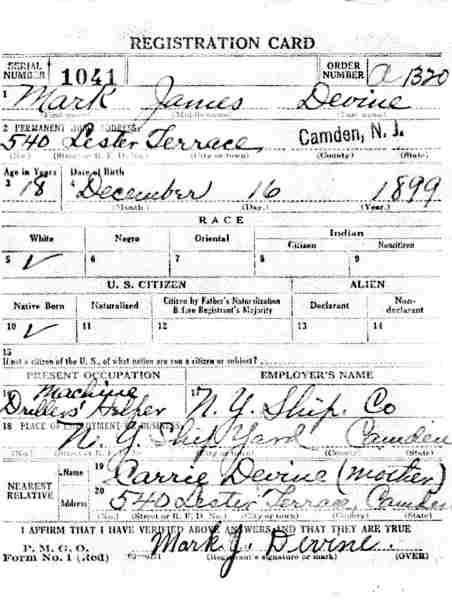 REGISTRATION CARD
SERIAL NUMBER 1041 ORDER NUMBER a 1320
1 Mark James Devine
(First name) (Middle name) (Last name)
2 PERMANENT HOME ADDRESS
540 Lester Terrace, Camden, N. J.
(No.) (Street or R. F. D. No.) (City or town) (County) (State)
Age in Years Date of Birth
3 18 4 December 16 1899
(Month.) (Day.) (Year.)
RACE
White Negro Oriental Indian
Citizen Noncitizen
5 ✓ 6 7 8 9
U. S. CITIZEN ALIEN
Native Born Naturalized Citizen by Father's Naturalization Before Registrant's Majority Declarant Non-declarant
10 ✓ 11 12 13 14
15
If not a citizen of the U. S., of what nation are you a citizen or subject?
PRESENT OCCUPATION EMPLOYER'S NAME
16 Machine Drillers' Helper 17 N. Y. Ship. Co
18 PLACE OF EMPLOYMENT OR BUSINESS:
N. Y. Ship Yard Camden
(No.) (Street or R. F. D. No.) (City or town) (County) (State)
NEAREST RELATIVE
Name 19 Carrie Devine (Mother)
Address 20 540 Lester Terrace, Camden
(No.) (Street or R. F. D. No.) (City or town) (County) (State)
I AFFIRM THAT I HAVE VERIFIED ABOVE ANSWERS AND THAT THEY ARE TRUE
P. M. G. O.
Form No. 1 (Red) Mark J. Devine
(Registrant's signature or mark) (OVER)